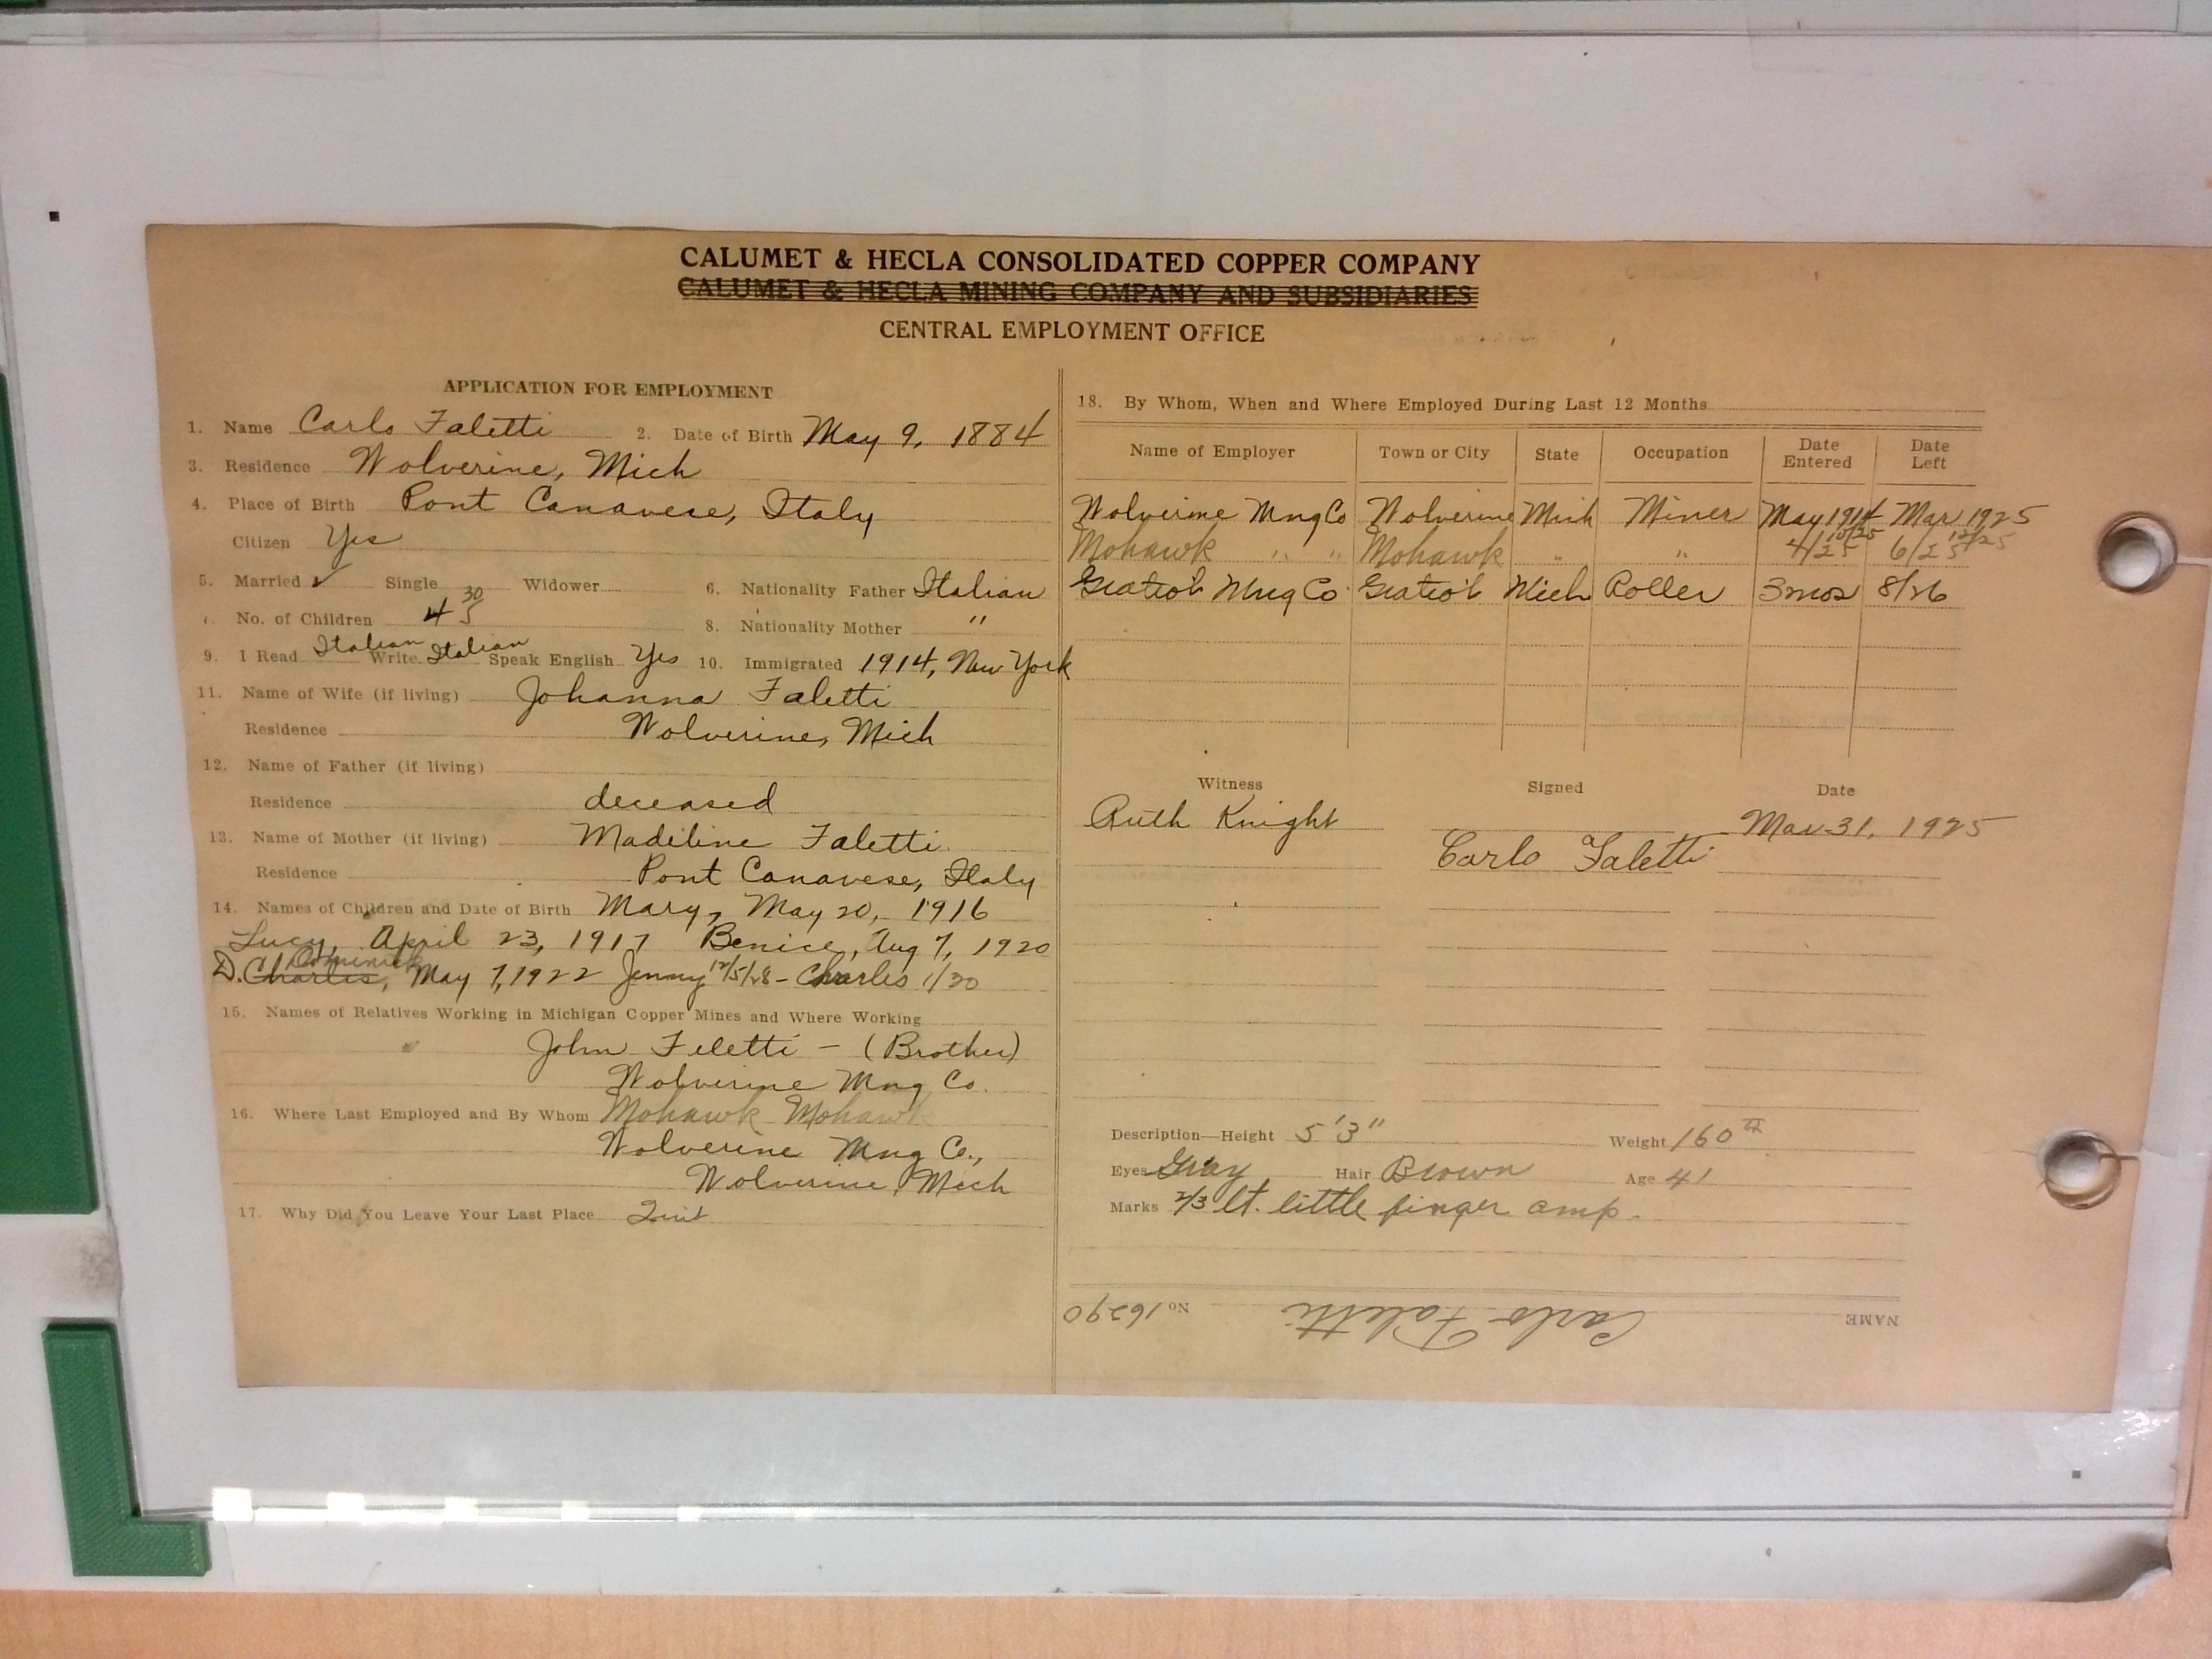 CALUMET & HECLA CONSOLIDATED COPPER COMPANY
CALUMET & HECLA MINING COMPANY AND SUBSIDIARIES
CENTRAL EMPLOYMENT OFFICE
APPLICATION FOR EMPLOYMENT
1. Name Carlo Faletti 2. Date of Birth May 9, 1884
3. Residence Wolverine, Mich
4. Place of Birth Pont Canavese, Italy
Citizen Yes
5. Married ✓ Single Widower 6. Nationality Father Italian
7. No. of Children 4 5 30 8. Nationality Mother "
9. I Read Italian Write Italian Speak English Yes 10. Immigrated 1914, New York
11. Name of Wife (if living) Johanna Faletti
Residence Wolverine, Mich
12. Name of Father (if living)
Residence deceased
13. Name of Mother (if living) Madiline Faletti
Residence Pont Canavese, Italy
14. Names of Children and Date of Birth Mary, May 20, 1916
Lucy, April 23, 1917 Benice, Aug 7, 1920
D. Charles, Dominick May 7, 1922 Jenny 12/5/28 - Charles 1/30
15. Names of Relatives Working in Michigan Copper Mines and Where Working
John Feletti - (Brother)
Wolverine Mng Co.
16. Where Last Employed and By Whom Mohawk Mohawk
Wolverine Mng Co.,
Wolverine, Mich
17. Why Did You Leave Your Last Place Quit
18. By Whom, When and Where Employed During Last 12 Months
Name of Employer Town or City State Occupation Date Entered Date Left
Wolverine Mng Co Wolverine Mich Miner May 1914 Mar 1925
Mohawk " " Mohawk " " 4/25 10/25 6/25 12/25
Gratiot Mng Co Gratiot Mich Roller 3mos 8/26
Witness Signed Date
Ruth Knight Mar 31, 1925
Carlo Faletti
Description—Height 5'3" Weight 160 #
Eyes Gray Hair Brown Age 41
Marks 2/3 lt. little finger amp.
NAME Carlo Faletti No 16290